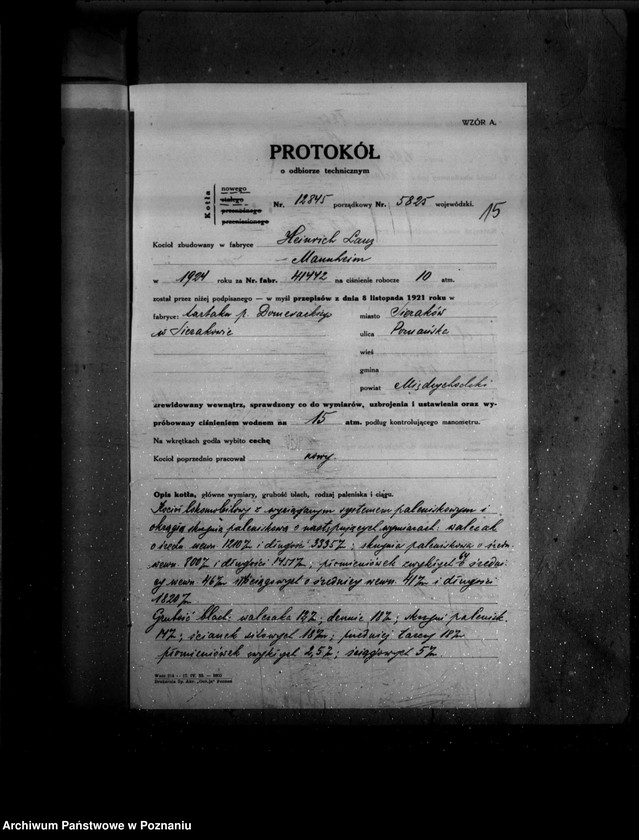 WZÓR A.
PROTOKÓŁ
o odbiorze technicznym
Kotła
nowego
stałego
przewoźnego
przeniesionego
Nr. 12845 porządkowy Nr. 5825 wojewódzki.
15
Kocioł zbudowany w fabryce Heinrich Lanz
Mannheim
w 1924 roku za Nr. fabr. 41442 na ciśnienie robocze 10 atm.
został przez niżej podpisanego — w myśl przepisów z dnia 8 listopada 1921 roku w
fabryce: tartaku p.
w Sierakowie
miasto Sieraków
ulica Poznańska
wieś
gmina
powiat Międzychodzki
zrewidowany wewnątrz, sprawdzony co do wymiarów, uzbrojenia i ustawienia oraz wy-
próbowany ciśnieniem wodnem na 15 atm. podług kontrolującego manometru.
Na wkrętkach godła wybito cechę
Kocioł poprzednio pracował nowy.
Opis kotła, główne wymiary, grubość blach, rodzaj paleniska i ciągu.
Kocioł lokomobilowy z wyciąganym systemem paleniskowym i
okrągłą skrzynią paleniskową o następujących wymiarach: walczak
o średn. wewn. i długości ; skrzynia paleniskowa o średn.
wewn. i długości ; płomieniówek zwykłych o średni
cy wewn. ściągowych o średnicy wewn. i długości
Grubość blach: walczaka ; dennic ; skrzyni palenisk.
; ścianek sitowych ; przedniej
płomieniówek zwykłych ; ściągowych
Drukarnia Sp. Akc. Poznań